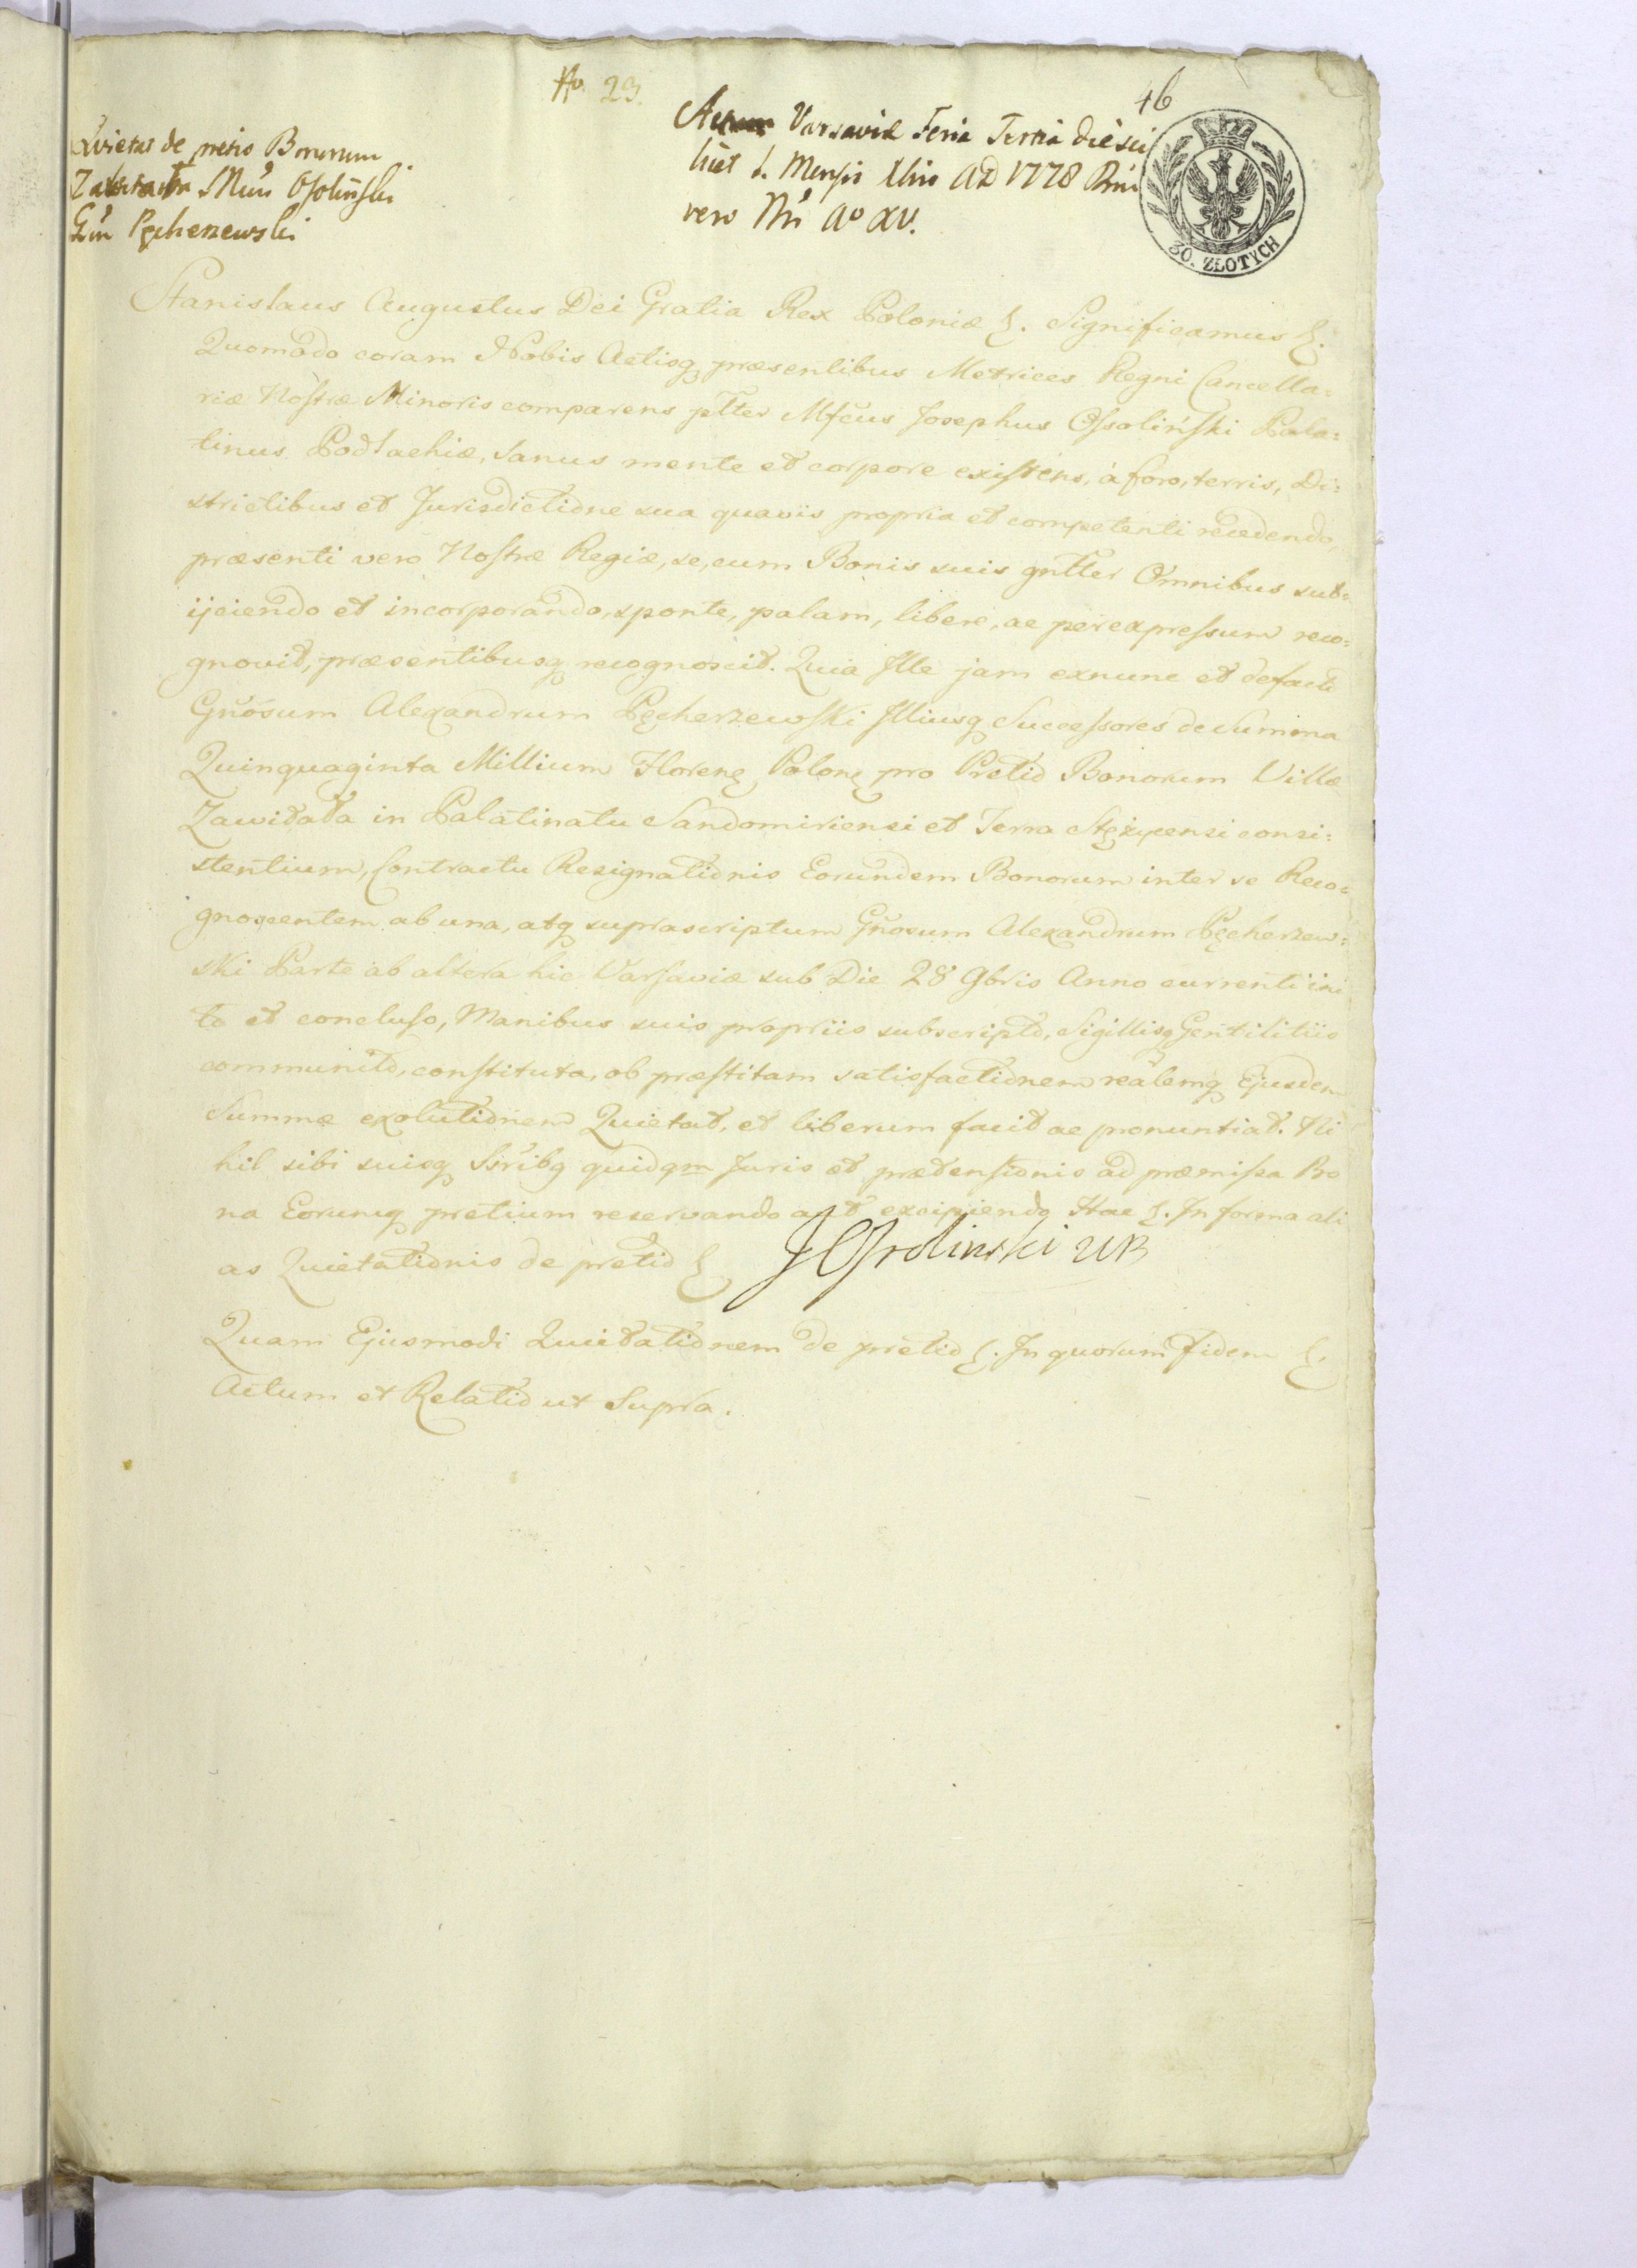 No 23.
46
Quietat de pretio Bonorum
Zawitata Mcus Ossoliński
Gn Pęcherzewski
Actum Varsaviæ Feria Tertia die sci
licet 1. Mensis Xbris AD 1778 Rni
vero Nri Ao XV.
30. ZŁOTYCH
Stanislaus Augustus Dei Gratia Rex Poloniæ &. Significamus &.
Quomodo coram Nobis Actisq præsentibus Metrices Regni Cancella=
riæ Nostræ Minoris comparens pltter Mfcus Josephus Ossoliński Pala=
tinus Podlachiæ, sanus mente et corpore existens, à foro, terris, Di=
strictibus et Jurisdictione sua quavis propria et competenti recedendo,
præsenti vero Nostræ Regiæ, se, cum Bonis suis gntter Omnibus sub=
ijciendo et incorporando, sponte, palam, libere, ac per expressum reco=
gnovit, præsentibusq recognoscit. Quia Ille jam exnunc et defacto
Gnosum Alexandrum Pęcherzewski Illiusq Successores de Summa
Quinquaginta Millium Floren Polon pro Pretio Bonorum Villæ
Zawitata in Palatinatu Sandomiriensi et Terra Stężycensi consi=
stentium, Contractu Resignationis Eorundem Bonorum inter se Reco=
gnoscentem ab una, atq suprascriptum Gnosum Alexandrum Pęcherzew=
ski Parte ab altera hic Varsaviæ sub Die 28 9bris Anno currenti ini
to et concluso, Manibus suis propriis subscripto, Sigillisq Gentilitiis
communito, constituta, ob præstitam satisfactionem realemq Ejusdem
Summæ exolutionem Quietat, et liberum facit ac pronuntiat. Ni
hil sibi suisq Ssribq quidqm Juris et prætensionis ad præmissa Bo
na Eorumq pretium reservando aut excipiendo Hac &. In forma ali
as Quietationis de pretio &
JOssolinski WP
Quam Ejusmodi Quietationem de pretio &. In quorum fidem &.
Actum et Relatio ut Supra.